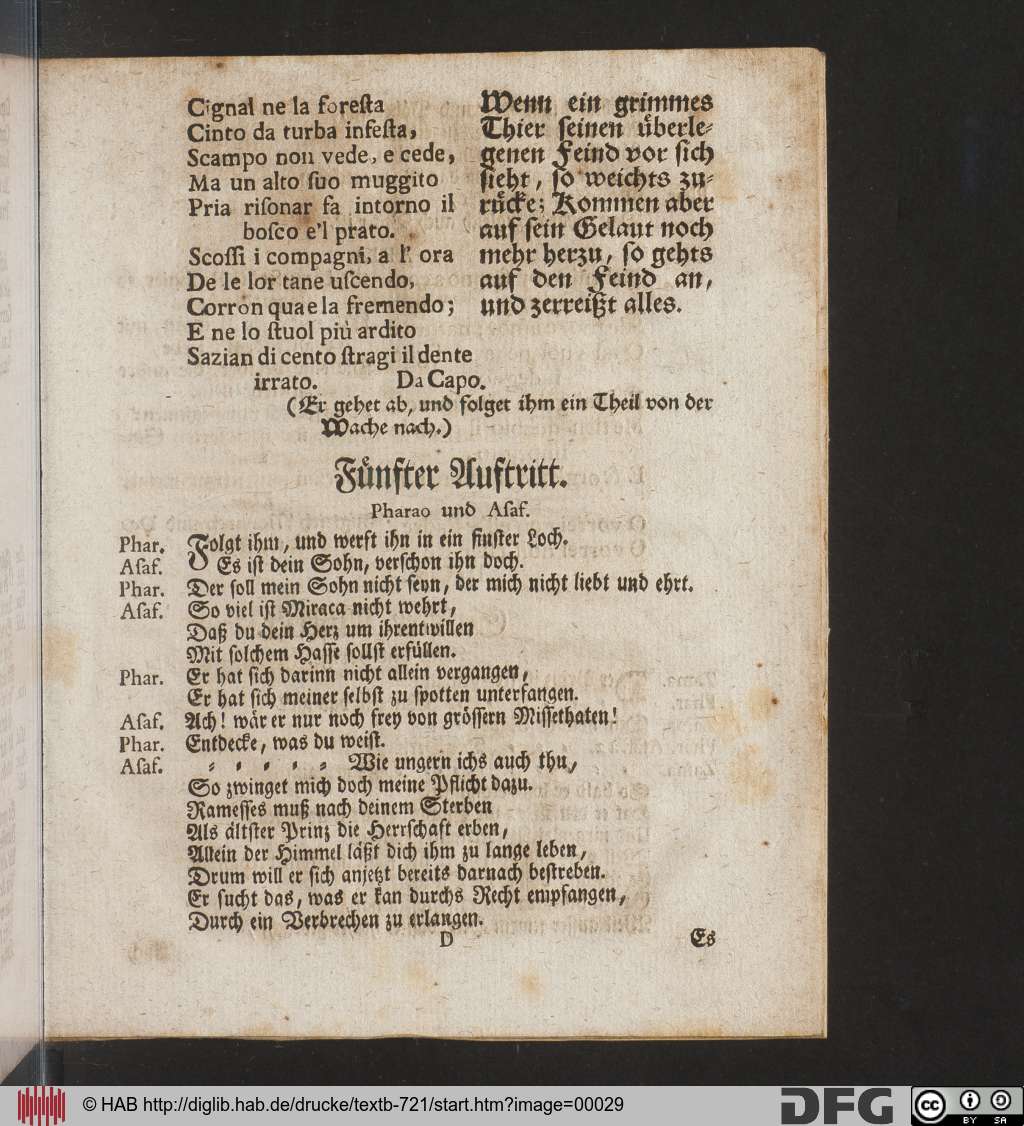 Cignal ne la foreſta
Cinto da turba infeſta,
Scampo non vede, e cede,
Ma un alto ſuo muggito
Pria riſonar fa intorno il
boſco e'l prato.
Scoſſi i compagni, a l' ora
De le lor tane uſcendo,
Corron qua e la fremendo;
E ne lo ſtuol più ardito
Sazian di cento ſtragi il dente
irrato. Da Capo.
Wenn ein grimmes
Thier ſeinen uͤberle⸗
genen Feind vor ſich
ſieht, ſo weichts zu⸗
ruͤcke; Kommen aber
auf ſein Gelaut noch
mehr herzu, ſo gehts
auf den Feind an,
und zerreißt alles.
(Er gehet ab, und folget ihm ein Theil von der
Wache nach.)
Fuͤnfter Auftritt.
Pharao und Aſaf.
Phar. Folgt ihm, und werft ihn in ein finſter Loch.
Aſaf. Es iſt dein Sohn, verſchon ihn doch.
Phar. Der ſoll mein Sohn nicht ſeyn, der mich nicht liebt und ehrt.
Aſaf. So viel iſt Miraca nicht wehrt,
Daß du dein Herz um ihrentwillen
Mit ſolchem Haſſe ſollſt erfuͤllen.
Phar. Er hat ſich darinn nicht allein vergangen,
Er hat ſich meiner ſelbſt zu ſpotten unterfangen.
Aſaf. Ach! waͤr er nur noch frey von groͤſſern Miſſethaten!
Phar. Entdecke, was du weiſt.
Aſaf. ⸗ ⸗ ⸗ ⸗ ⸗ Wie ungern ichs auch thu,
So zwinget mich doch meine Pflicht dazu.
Rameſſes muß nach deinem Sterben
Als aͤltſter Prinz die Herrſchaft erben,
Allein der Himmel laͤßt dich ihm zu lange leben,
Drum will er ſich anjetzt bereits darnach beſtreben.
Er ſucht das, was er kan durchs Recht empfangen,
Durch ein Verbrechen zu erlangen.
D Es
© HAB http://diglib.hab.de/drucke/textb-721/start.htm?image=00029
DFG
cc BY SA